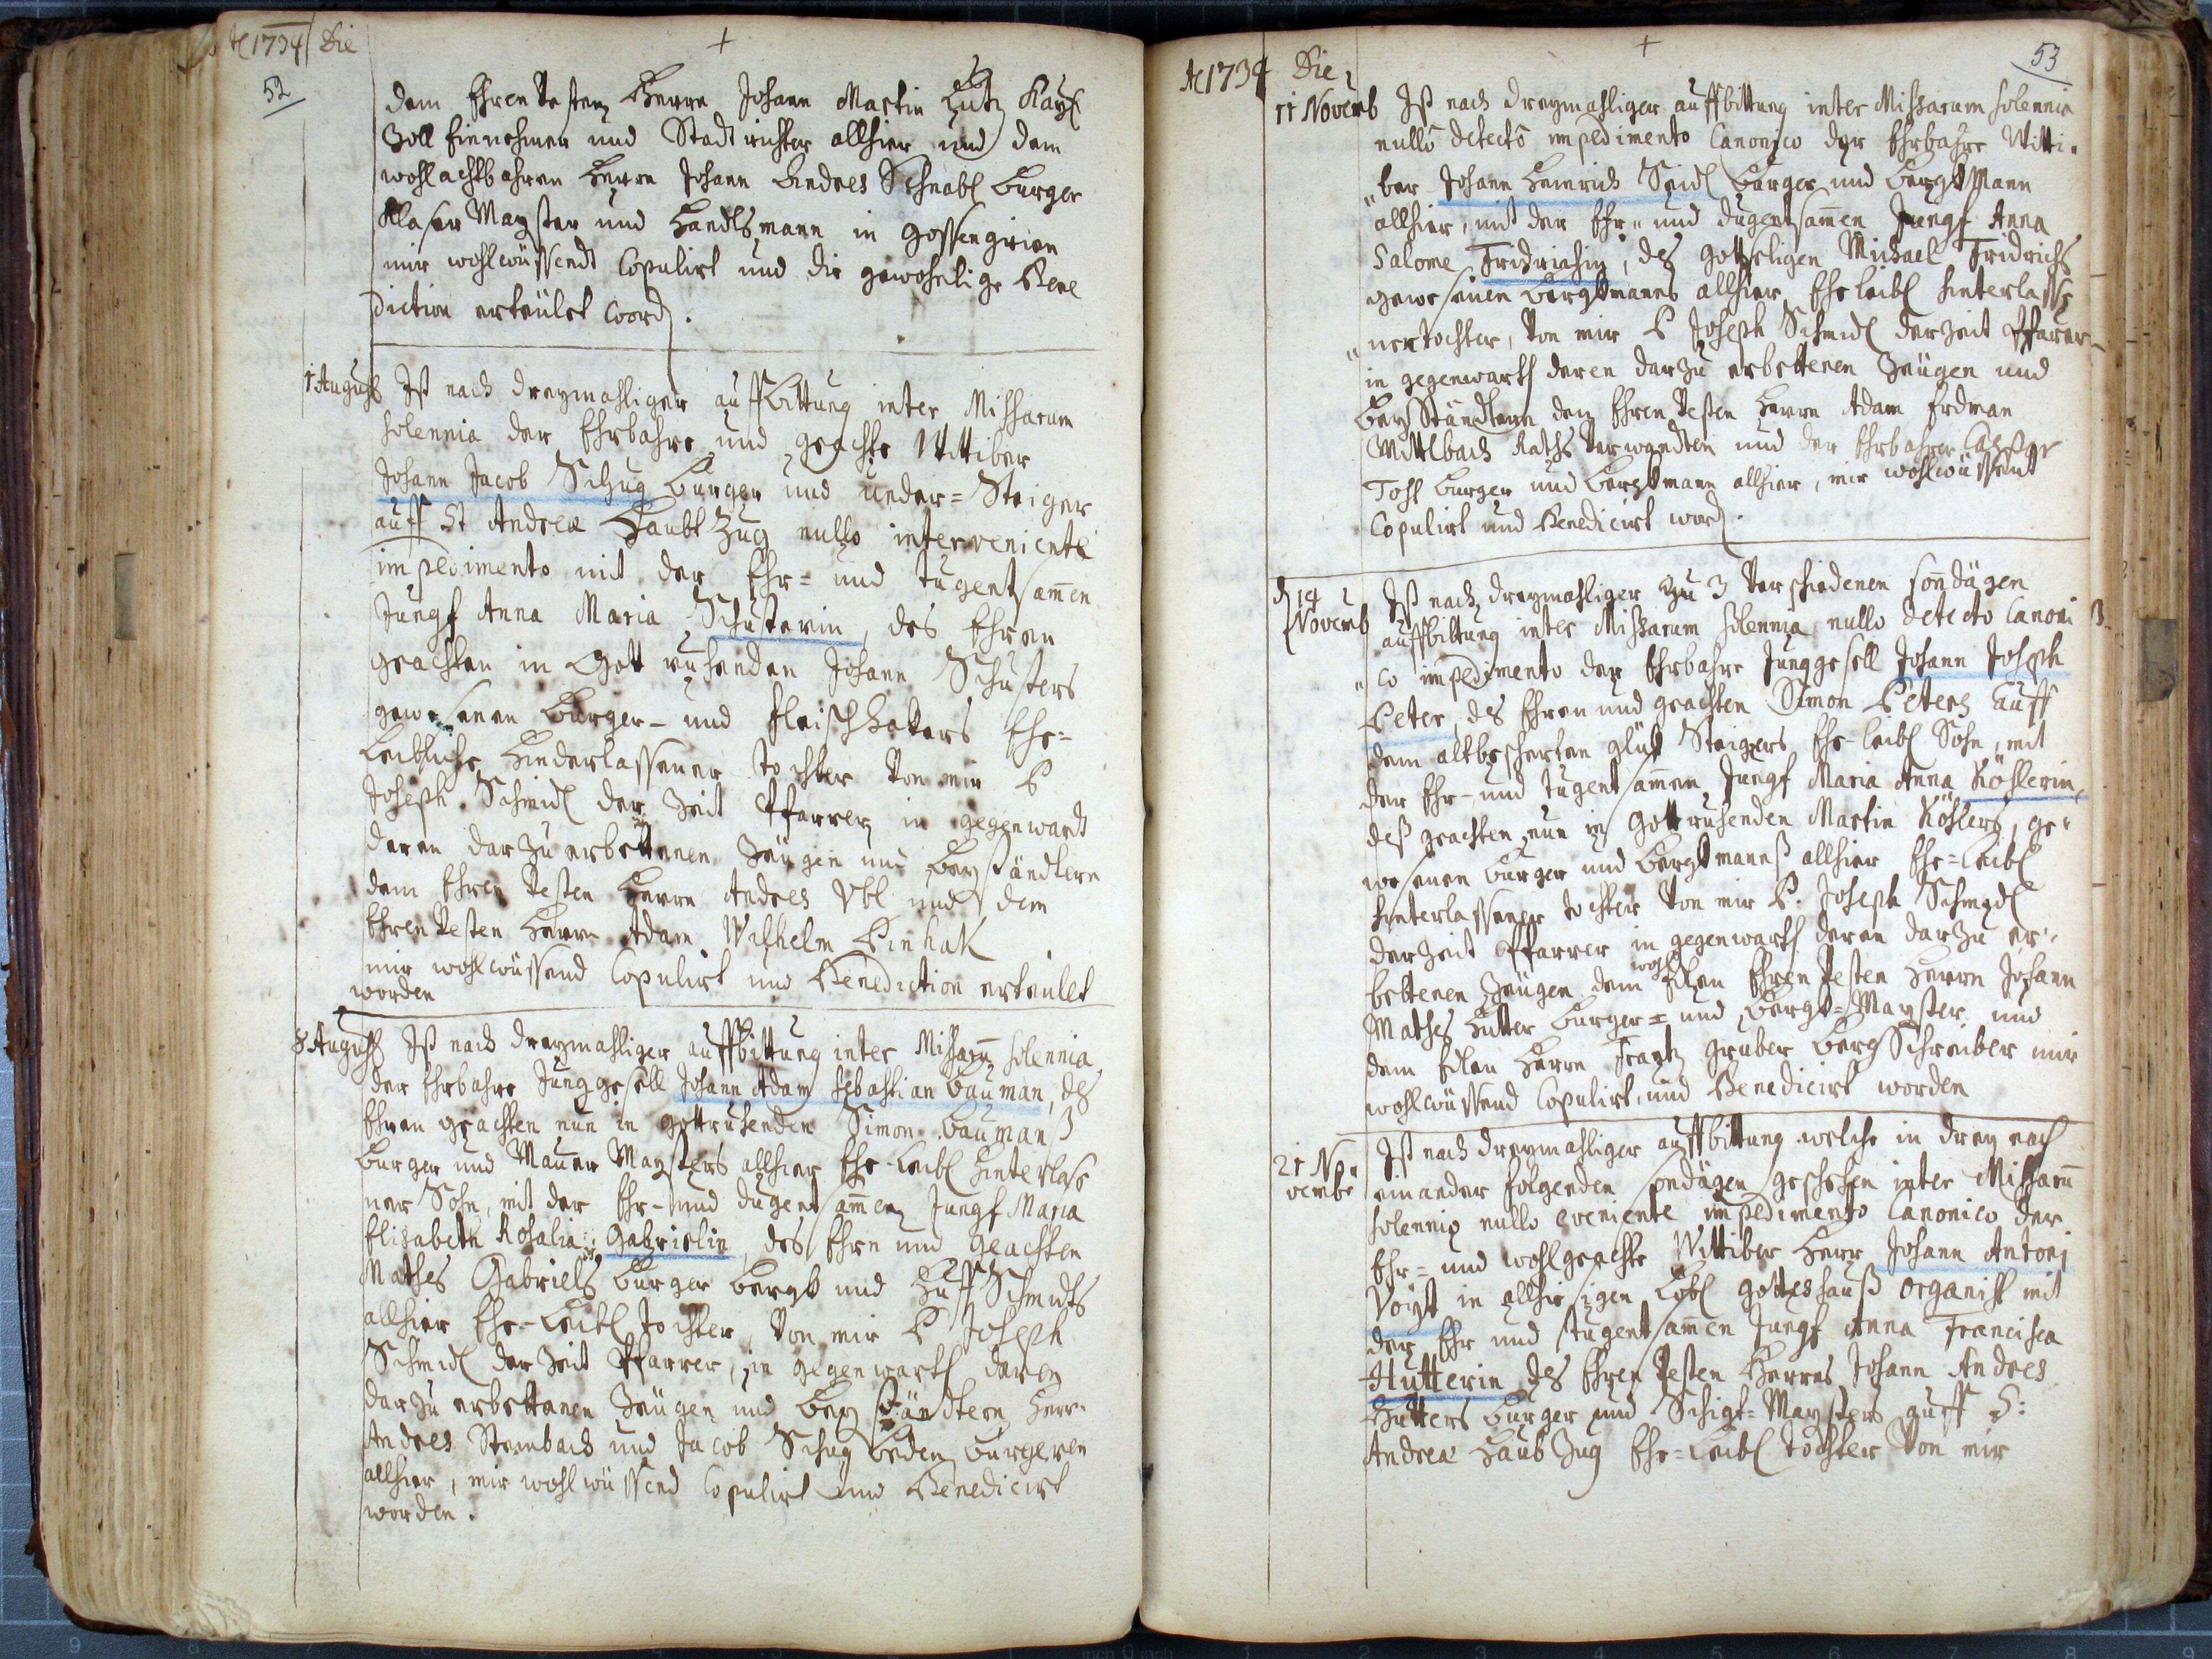 Ao 1734 Die
52
dem Ehren Vesten Herrn Johann Martin Lutz Kays
Zoll Einnehmer und Stadtrichter allhier und dem
wohlachtbahren Herrn Johann Andres Schnabl burger
Glaser Mayster und Handlsmann in Gossengrien
mir wohlwüssendt Copulirt und die gewohnlige Bene
diction erteület word.
1 August Ist nach dreymahliger auffbittung inter Missarum
solennia der Ehrbahre und geachte Wittiber
Johann Jacob Schug burger und under=Steiger
auff St Andreæ Haubt Zug nullo interveniente
impedimento mit der Ehr= und tugentsamen
Jungf Anna Maria Schusterin, des Ehren
geachten in Gott ruhenden Johann Schusters
gewesenen burger- und fleischhakers Ehe=
Leibliche Hinderlassener tochter von mir P
Joseph Schmidl der Zeit Pfarrer in gegenwardt
deren darzu erbettenen Zeügen und beyständtern
dem Ehren Vesten Herrn Andres Ybl und dem
Ehren Vesten Herrn Adam Wilhelm Pinhak
mir wohlwüssend Copulirt und Benediction erteület
worden
8 August Ist nach dreymahliger auffbittung inter Missarum solennia
der Ehrbahre Junggesell Johann Adam Sebastian bauman, des
Ehren geachten nun in gottruhenden Simon baumanß
burger und Maurer Maysters allhier Ehe-Leibl hinterlaße
ner Sohn, mit der Ehr- und dugentsamen Jungf Maria
Elisabeth Rosalia Gabrielin, des Ehren und geachten
Mathes Gabriels burger bergk und Huff Schmidts
allhier Ehe-Leibl tochter, Von mir P Joseph
Schmidl der Zeit Pfarrer, in gegenwarth deren
darzu erbettenen Zeügen und beyständtern Herrn
Andres Steinbach und Jacob Schug beden burgeren
allhier, mir wohlwüssend Copulirt und Benedicirt
worden.
Ao 1734 Die
53
11 Novemb Ist nach dreymahliger auffbittung inter Missarum solennia
nullo detecto impedimento Canonico der Ehrbahre Witti=
ber Johann Heinrich Seidl burger und bergkMann
allhier, mit der Ehr= und dugentsamen Jungf Anna
Salome Fridrichin, des gottseligen Michael Fridrichs
gewesenen bergkmanns allhier Ehe leibl hinterlasse
ner tochter, Von mir P Joseph Schmidl der Zeit Pfarer
in gegenwarth deren darzu erbettenen Zeügen und
bey Ständtern den Ehren Vesten Herrn Adam Erdman
Mittlbach Raths Verwandten und der Ehrbahrer
Tohl burger und bergkmann allhier, mir wohlwüssent
Copulirt und Benedicirt word.
d 14 Novemb Ist nach dreymahliger zu 3 Verschiedenen sondägen
auffbittung inter Missarum solennia nullo detecto Canoni
co impedimento der Ehrbahre Junggesell Johann Joseph
Peter, des Ehren und geachten Simon Peters auff
dem altbescherten glük Steigers Ehe-leibl Sohn, mit
der Ehr- und tugentsamen Jungf Maria Anna Köhlerin,
deß geachten nun in Gottruhenden Martin Köhlers, ge=
wesenen burger und bergkmannß allhier Ehe=Leibl
hinterlassener tochter Von mir P. Joseph Schmydl
der Zeit Pfarrer in gegenwarth deren darzu er=
bettenen Zeügen dem wohl Edlen Ehren Vesten Herrn Johann
Mathes Hutter burger= und bergk=Mayster und
dem Edlen Herrn Frantz gruber berg Schreiber mir
wohlwüssend Copulirt und Benedicirt worden
21 No=
vembr Ist nach dreymahliger auffbittung welche in drey nach
einander folgenden sondägen geschehen inter Missarum
solennia nullo eveniente impedimento Canonico der
Ehr= und wohlgeachte Wittiber Herr Johann Antonj
Voigt in allhiesigen Löbl gotteshauß organist mit
der Ehr und tugentsamen Jungf Anna Francisca
Hutterin des Ehren Vesten Herrns Johann Andres
Hutters burger und Schigt=Maysters auff S:
Andreæ Haub Zug Ehe=Leibl tochter Von mir